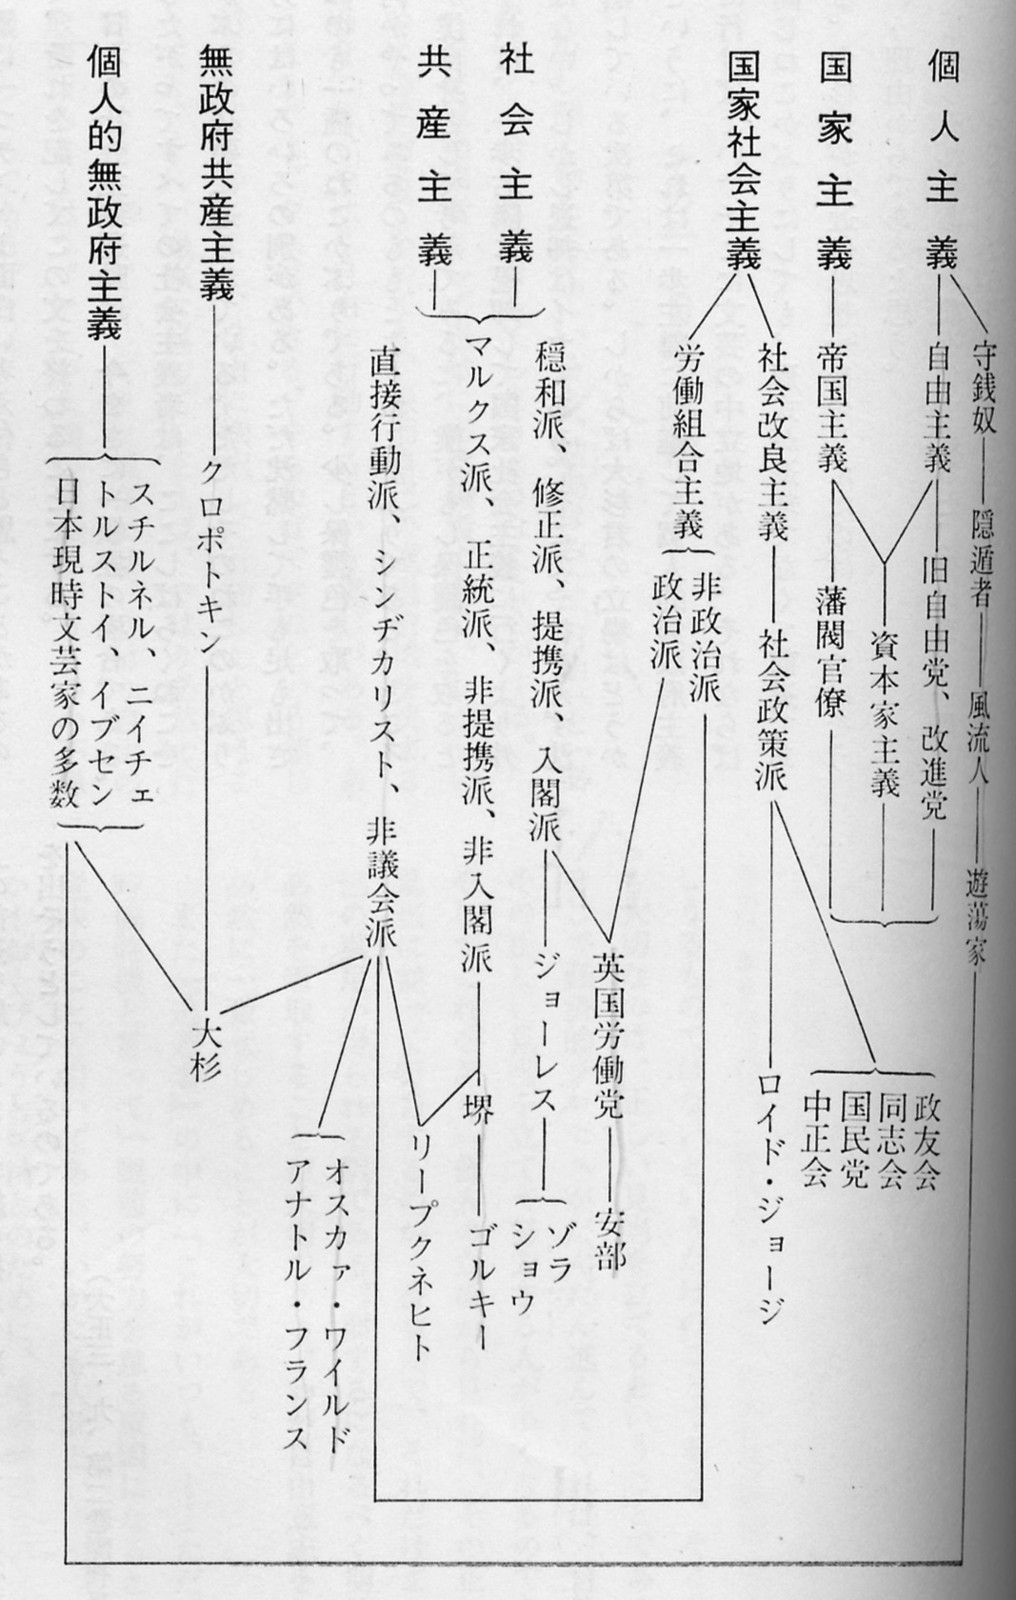 個人主義
守銭奴
隠遁者
風流人
遊蕩家
自由主義
旧自由党、改進党
国家主義
帝国主義
資本家主義
藩閥官僚
国家社会主義
社会改良主義
社会政策派
政友会
同志会
国民党
中正会
ロイド・ジョージ
労働組合主義
非政治派
政治派
英国労働党
安部
社会主義
共産主義
穏和派、修正派、提携派、入閣派
ジョーレス
ゾラ
ショウ
マルクス派、正統派、非提携派、非入閣派
堺
ゴルキー
リープクネヒト
直接行動派、シンヂカリスト、非議会派
オスカァ・ワイルド
アナトル・フランス
無政府共産主義
クロポトキン
大杉
個人的無政府主義
スチルネル、ニイチェ
トルストイ、イブセン
日本現時文芸家の多数